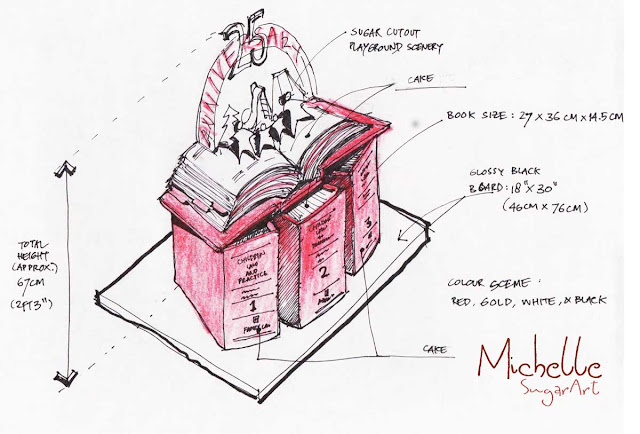 25
ANNIVERSARY
SUGAR CUTOUT
PLAYGROUND SCENERY
CAKE
BOOK SIZE : 27 x 36 CM x 14.5CM
GLOSSY BLACK
BOARD: 18" x 30"
(46CM x 76CM)
TOTAL
HEIGHT
(APPROX.)
67CM
(2FT3")
CHILDREN
LAW
AND
PRACTICE
1
FAMILY LAW
CHILDREN
LAW
AND
2
3
COLOUR SCEME :
RED, GOLD, WHITE, & BLACK
CAKE
Michelle
SugarArt